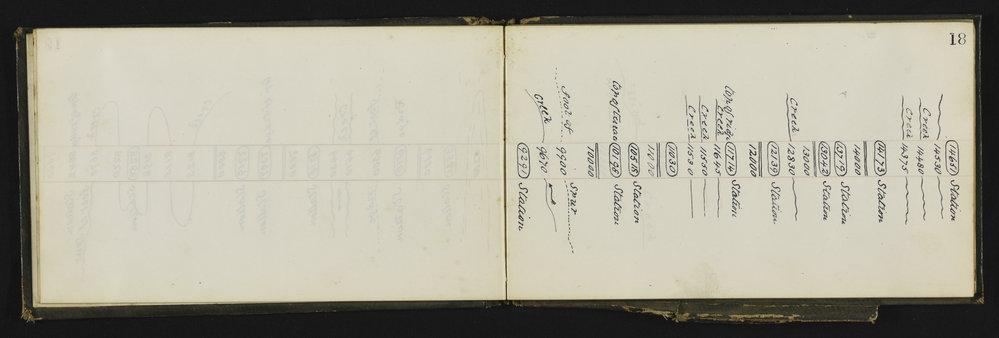 18
14651 Station
14530
Creek 14480
Creek 14375
14173 Station
14000
13779 Station
13042 Station
13000
Creek 12830
12139 Station
12000
11714 Station
Creek 11645
Creek 11550
Creek 11530
11030
11000
10518 Station
10178 Station
10000
Foot of 9900 Spur
Creek 9670
9291 Station